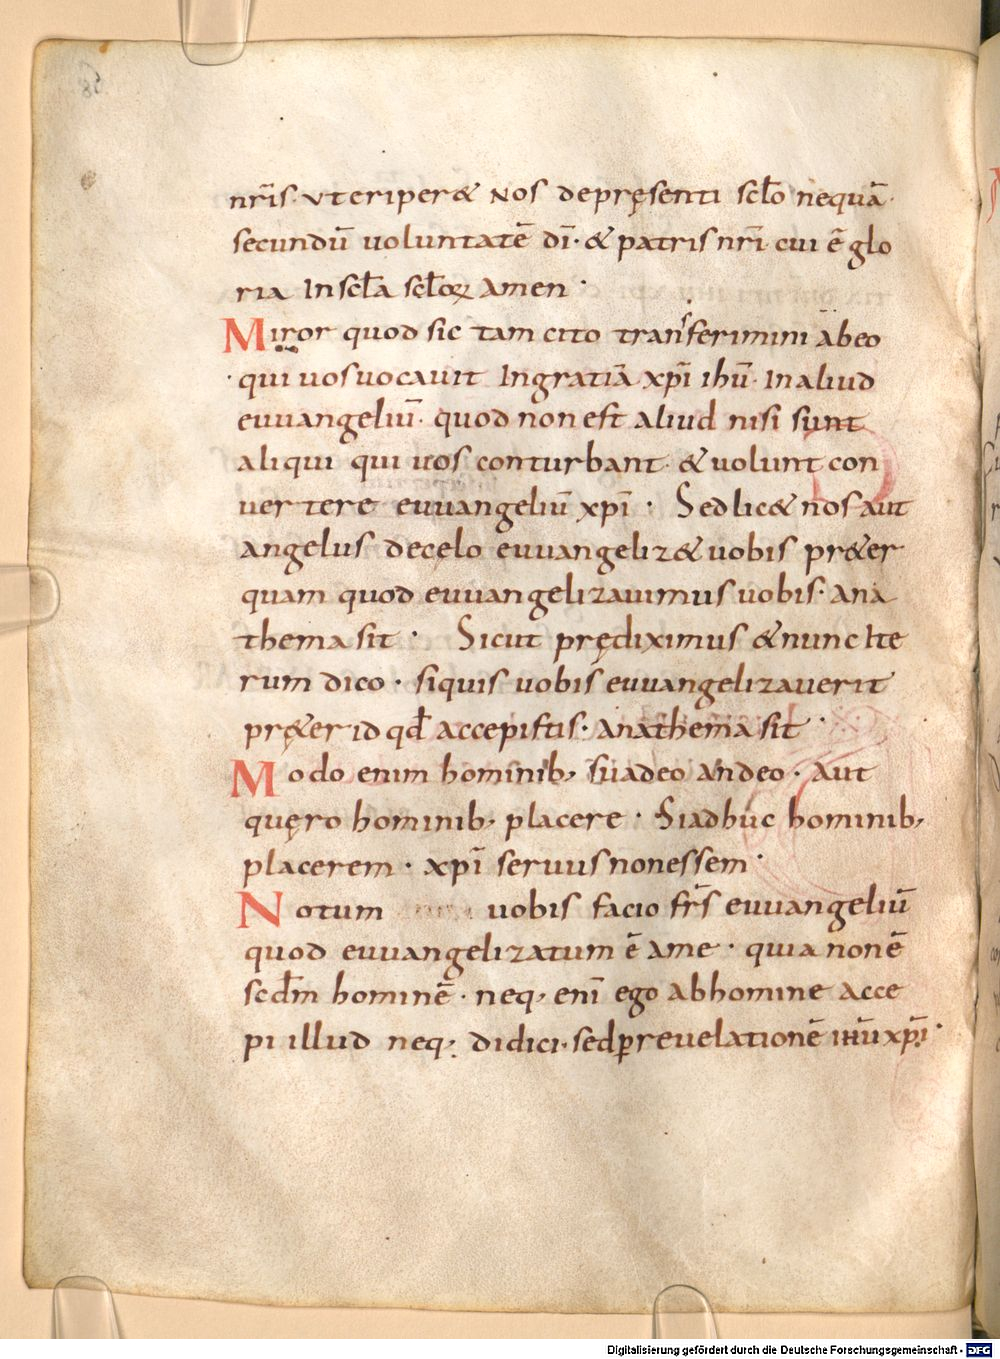 nr̄is· vt eriper& nos de pręsenti sc̄lo nequā·
secundū uoluntatē dī· & patris nr̄i· cui ē glo
ria In sc̄la sc̄loꝝ amen·
Miror quod sic tam cito transferimini abeo
·qui uos uocauit In gratiā xp̄i ihū· In aliud
euuangeliū· quod non est aliud nisi sunt
aliqui qui uos conturbant· & uolunt con
uertere euuangeliū xp̄i· Sed lic& nos aut
angelus de cęlo euuangeliz& uobis pr&er
quam quod euuangelizauimus uobis· ana
thema sit· Sicut prędiximus & nunc Ite
rum dico· siquis uobis euuangelizauerit
pr&er id qd̄ accepistis· anathema sit·
Modo enim hominib; suadeo an deo· aut
quęro hominib; placere· Si adhuc hominib;
placerem· xp̄i seruus non essem·
Notum uobis facio fr̄s euuangeliū
quod euuangelizatum ē a me· quia non ē
scd̄m hominē· neq; enī ego ab homine acce
pi illud neq; didici· sed ꝑ reuelationē ihū xp̄i·
Digitalisierung gefördert durch die Deutsche Forschungsgemeinschaft - DFG